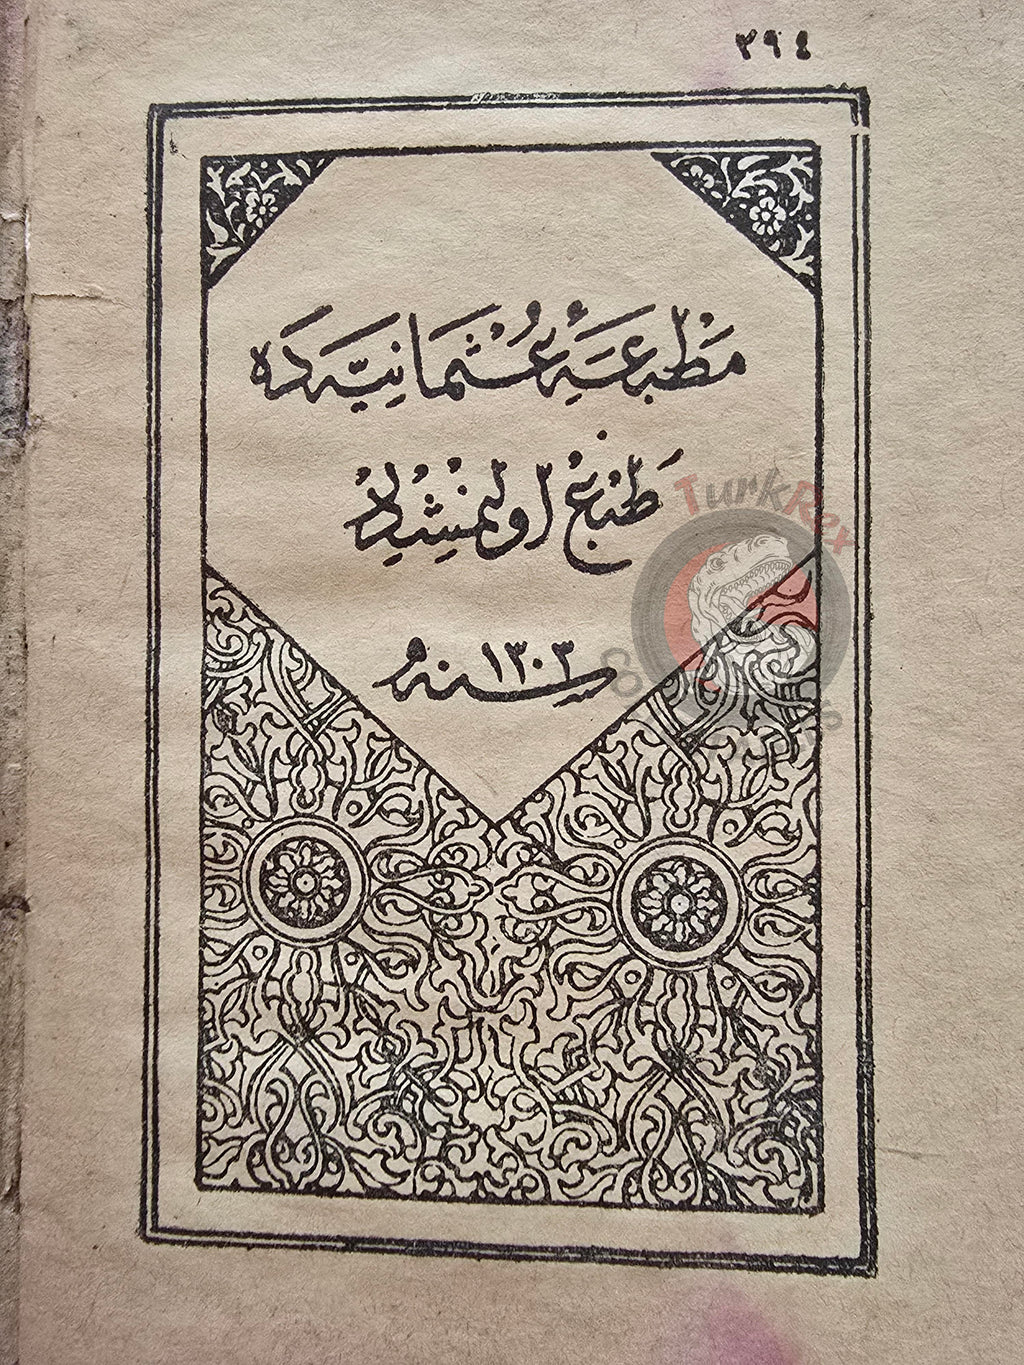 ٣٩٤
مَطْبَعَهِٔ عُثْمَانِيَّه دَه
طَبْعْ اولُنْمِشْدِرْ
سنه ١٣٠٣
TurkRex